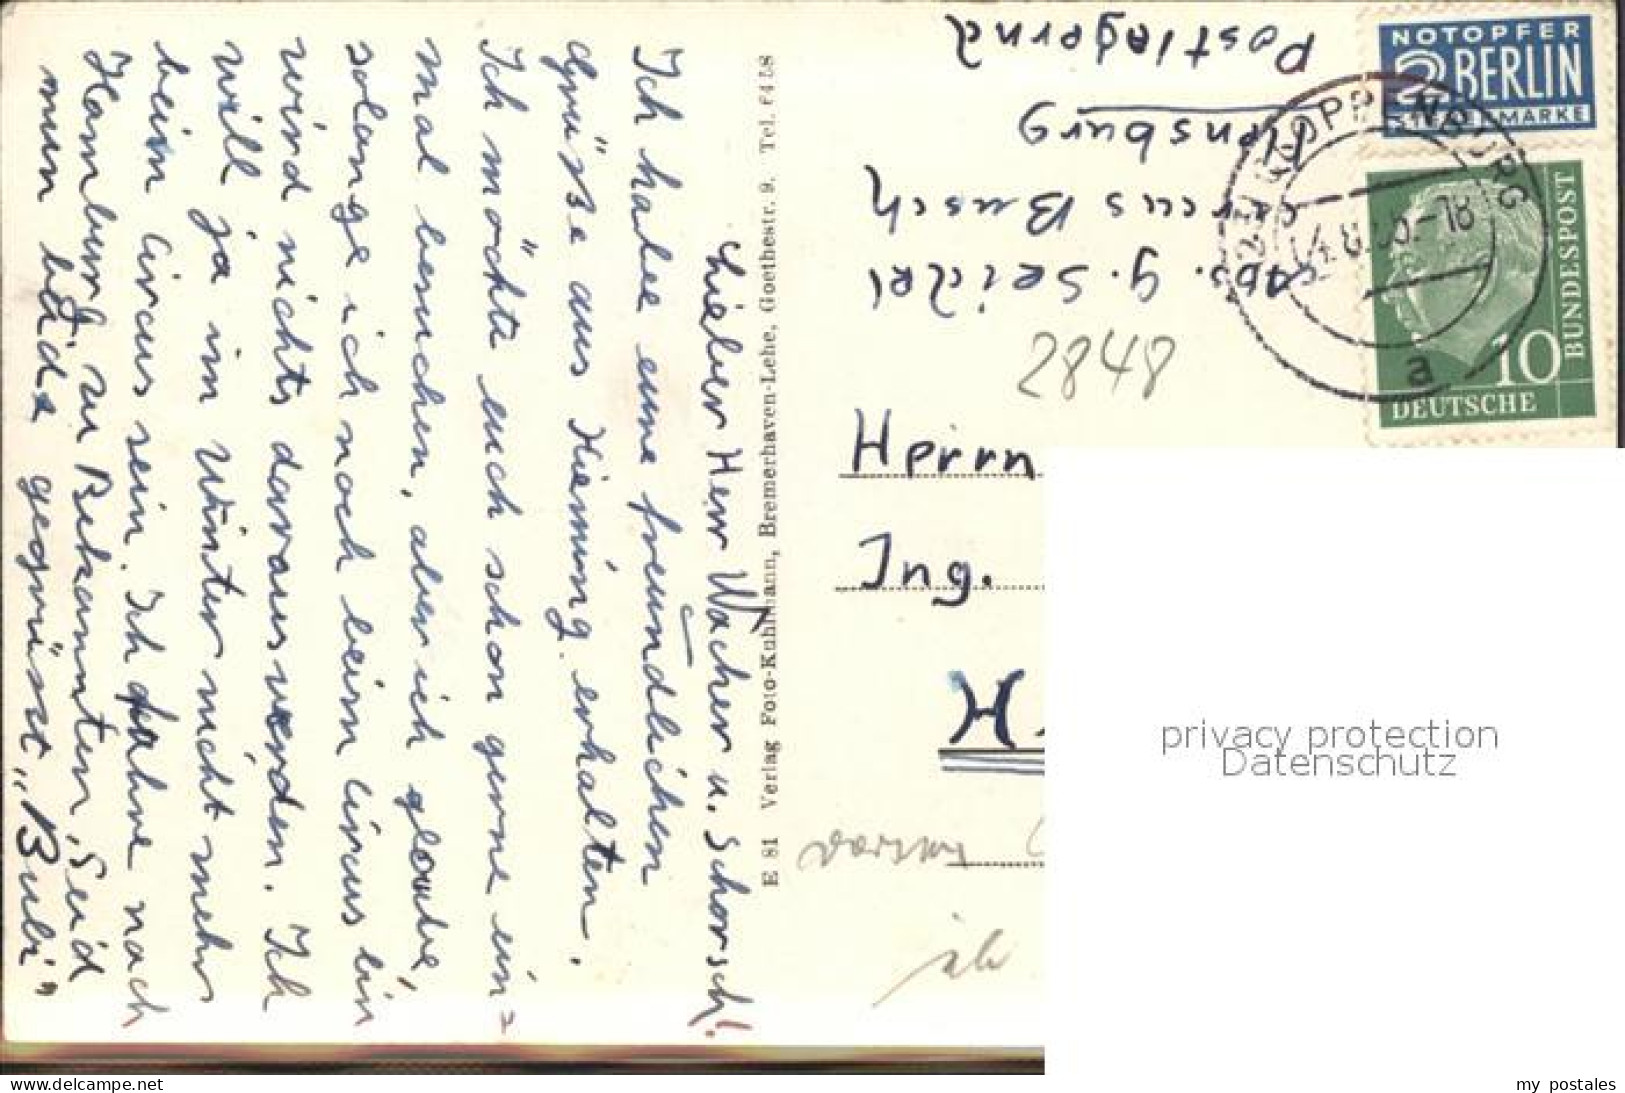 Lieber Herr Wacher u. Schorsch!
Ich habe eure freundlichen
Grüße aus Hiening erhalten.
Ich möchte euch schon gerne ein=
mal besuchen, aber ich glaube,
solange ich noch beim Circus bin
wird nichts daraus werden. Ich
will ja im Winter nicht mehr
beim Circus sein. Ich fahre nach
Hamburg zu Bekannten, Seid
nun beide gegrüsst „Bubi"
E 81 Verlag Foto-Kuhlmann, Bremerhaven-Lehe, Goethestr. 9, Tel.
Abs. G. Seidel
Circus Busch
Flensburg
Postlagernd
NOTOPFER
2 BERLIN
STEUERMARKE
DEUTSCHE
BUNDESPOST
10
CLOPPENBURG
a
2848
Herrn
Ing.
H
privacy protection
Datenschutz
www.delcampe.net
my_postales